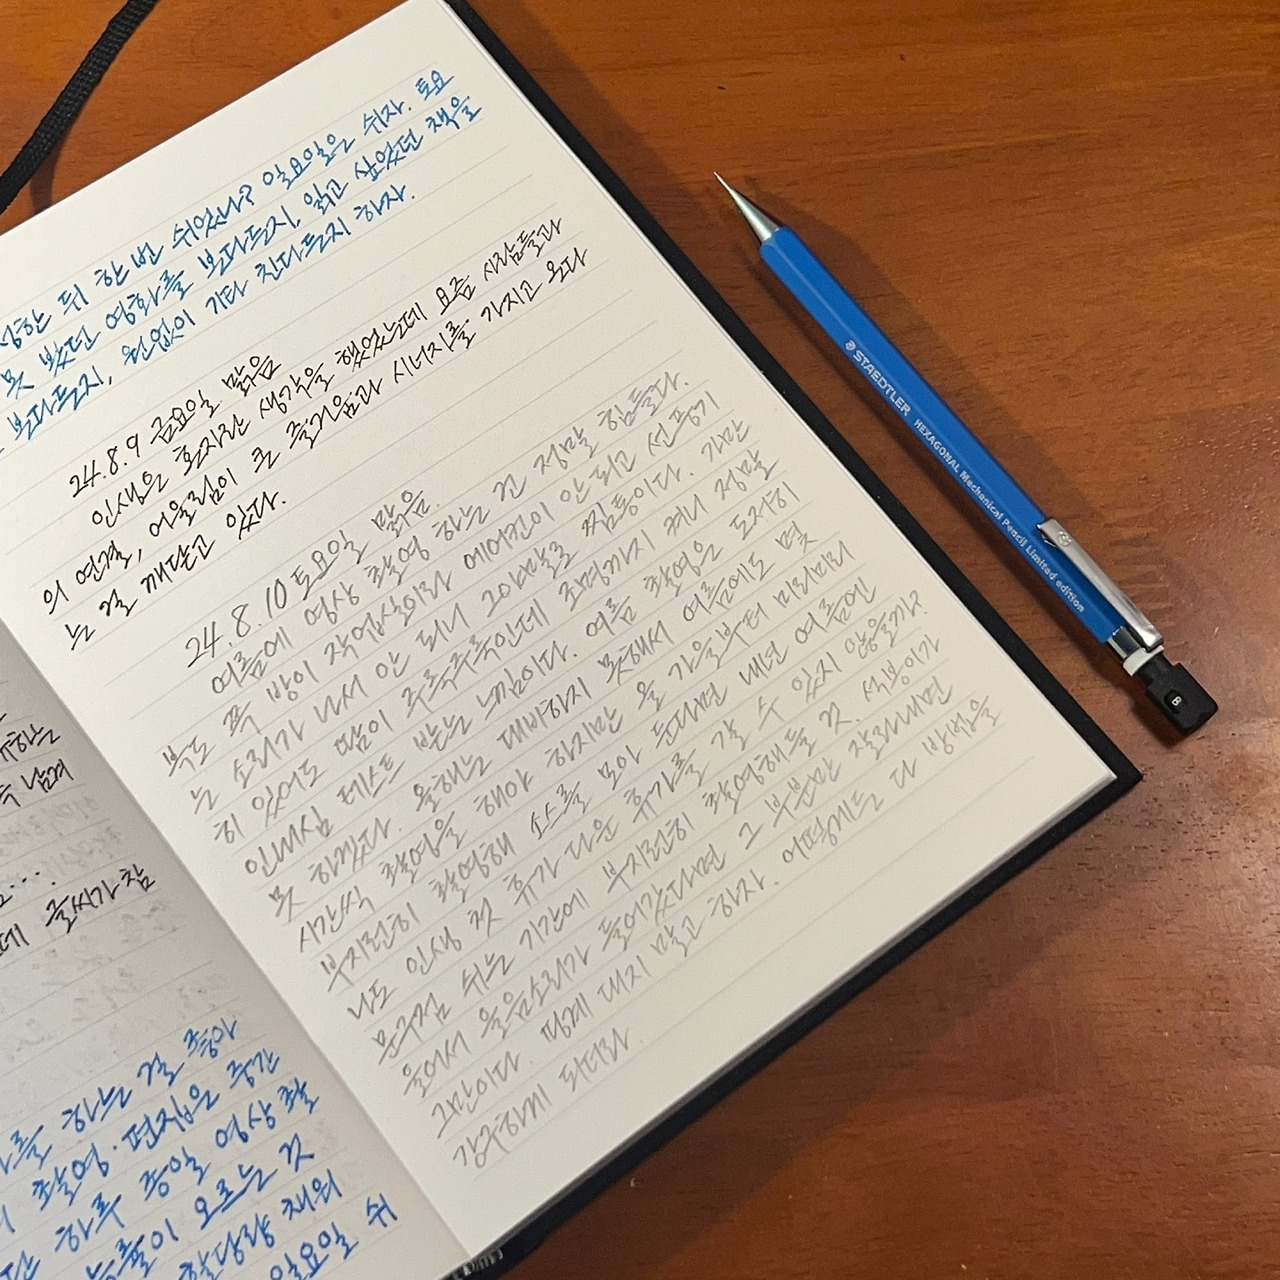 유하는
남겨
글씨가 참
하는 걸 좋아
촬영·편집은 중간
하루 종일 영상 촬
능률이 오르는 것
할당량 채워
일요일 쉬
한 뒤 한 번 쉬었나? 일요일은 쉬자. 토요
못 봤던 영화를 본다든지, 읽고 싶었던 책을
본다든지, 원없이 기타 친다든지 하자.
24.8.9 금요일. 맑음
인생은 혼자란 생각을 했었는데 요즘 사람들과
의 연결, 어울림이 큰 즐거움과 시너지를 가지고 온다
는 걸 깨닫고 있다.
24.8.10 토요일 맑음.
여름에 영상 촬영 하는 건 정말 힘들다.
특 방이 작업실이라 에어컨이 안 되고 선풍기
는 소리가 나서 안 되니 20여분을 찜통이다. 가만
히 있어도 땀이 주륵주륵인데 조명까지 켜니 정말
인내심 테스트 받는 느낌이다. 여름 촬영은 도저히
못 하겠다. 올해는 대비하지 못해서 여름에도 몇
시간씩 촬영을 해야 하지만 올 가을부터 미리미리
부지런히 촬영해 소스를 모아 둔다면 내년 여름엔
나도 인생 첫 휴가다운 휴가를 갈 수 있지 않을까?
문구점 쉬는 기간에 부지런히 촬영해둘 것. 석봉이가
울어서 울음소리가 들어갔다면 그 부분만 잘라내면
그만이다. 핑계 대지 말고 하자. 어떻게든 다 방법을
강구하게 되더라.
STAEDTLER HEXAGONAL Mechanical Pencil Limited edition
B